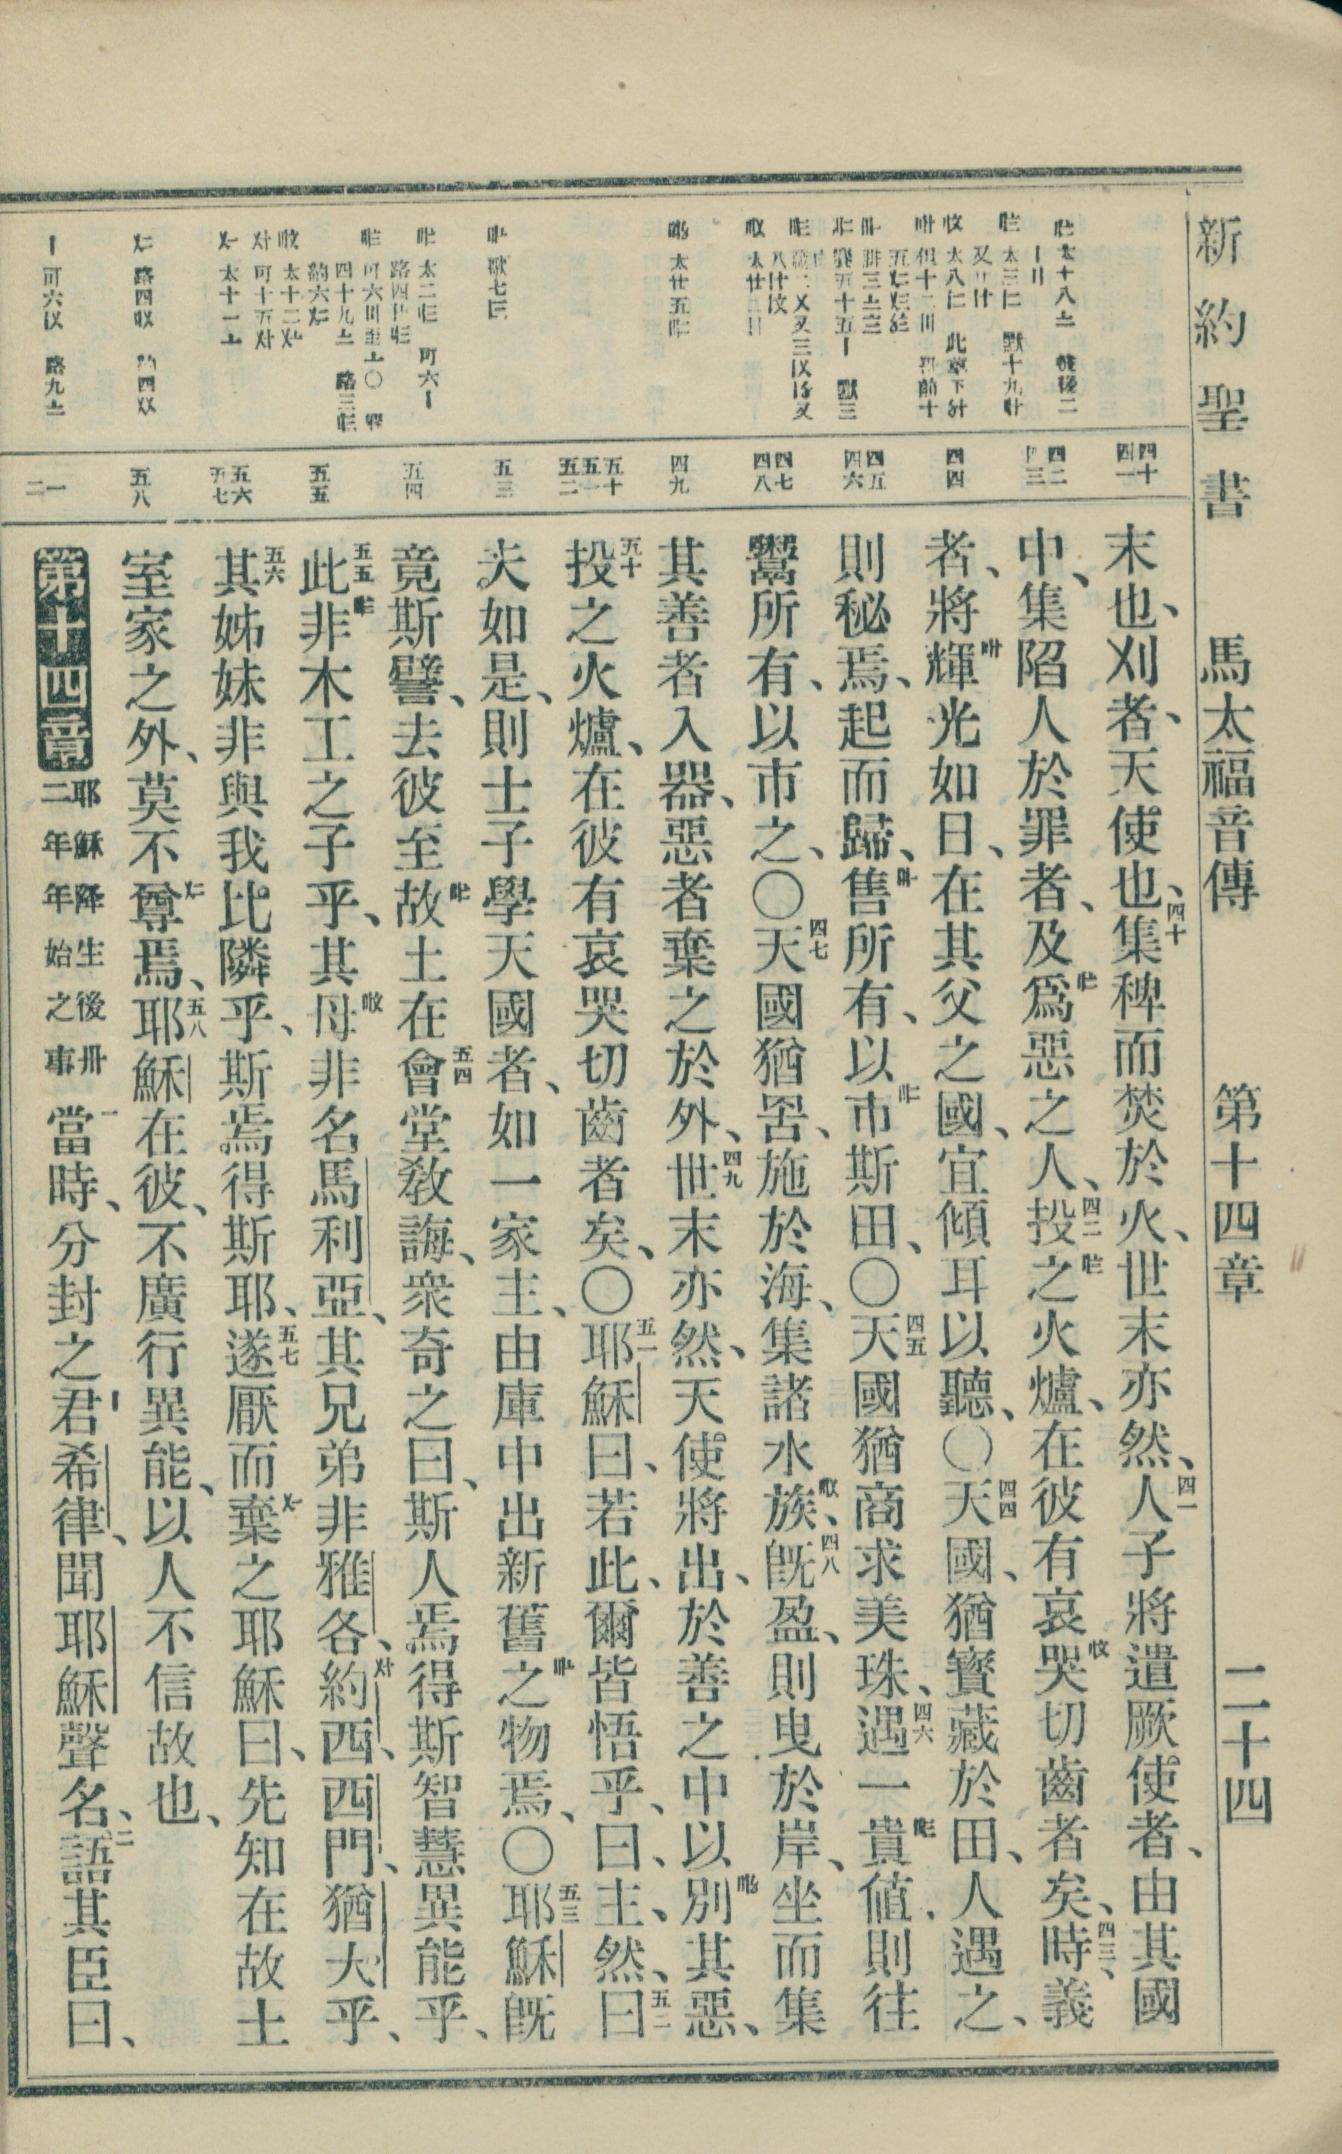 新約聖書 馬太福音傳 第十四章 二十四
末也、刈者、天使也、四十集稗而焚於火、世末亦然、四一人子將遣厥使者、由其國
中、集陷人於罪者、及爲惡之人、四二投之火爐、在彼有哀哭切齒者矣、四三時、義
者、將輝光如日、在其父之國、宜傾耳以聽、〇四四天國、猶寶藏於田、人遇之、
則秘焉、起而歸、售所有、以市斯田、〇四五天國猶商求美珠、四六遇一貴値、則往
鬻所有、以市之、〇四七天國猶罟、施於海、集諸水族、四八旣盈、則曳於岸、坐而集
其善者入器、惡者棄之於外、四九世末亦然、天使將出、於善之中以別其惡、
五十投之火爐、在彼有哀哭切齒者矣、〇五一耶穌曰、若此、爾皆悟乎、曰、主、然、五二曰
夫如是、則士子學天國者、如一家主、由庫中出新舊之物焉、〇五三耶穌旣
竟斯譬、去彼至故土在五四會堂敎誨、衆奇之曰、斯人焉得斯智慧異能乎、
五五此非木工之子乎、其母非名馬利亞、其兄弟非雅各、約西、西門、猶大乎、
五六其姊妹非與我比隣乎、斯焉得斯耶、五七遂厭而棄之耶穌曰、先知在故土
室家之外、莫不尊焉、五八耶穌在彼、不廣行異能、以人不信故也、
第十四章 耶穌降生後卅二年年始之事 一當時、分封之君希律、聞耶穌聲名、二語其臣曰、
四十 四一
四二 四三
四四
四五 四六
四七 四八
四九
五十 五一 五二
五三
五四
五五
五六 五七
五八
一 二